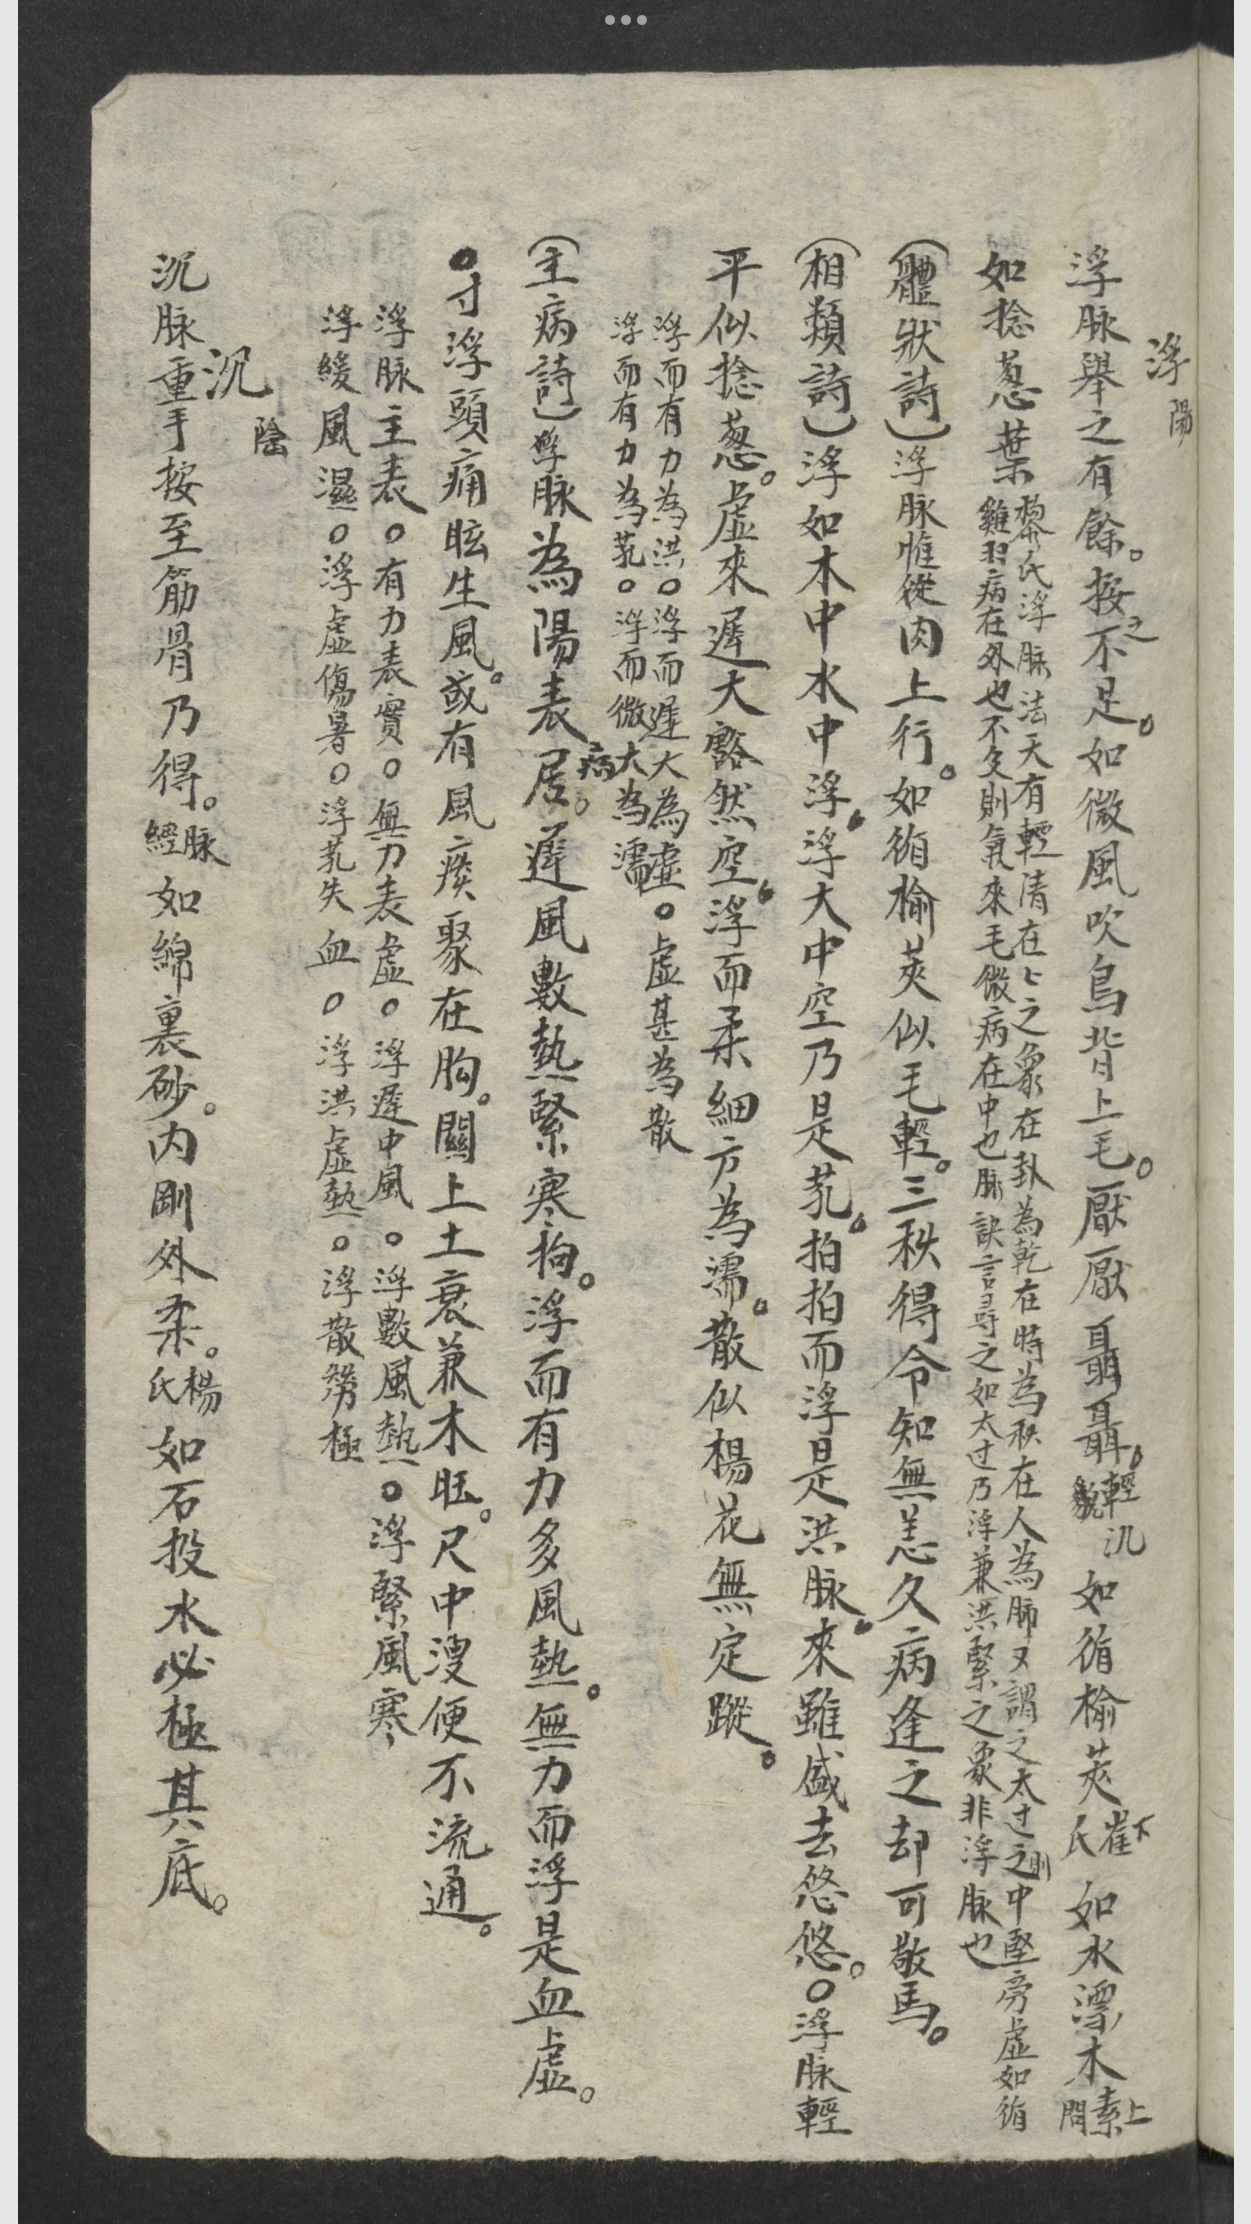 浮 陽
浮脉舉之有餘。按之不足。如微風吹鳥背上毛。厭厭聶聶。輕汎貌如循榆莢崔氏下如水漂木素問上
如捻葱葉黎氏浮脉法天有輕清在上之象在卦為乾在時為秋在人為肺又謂之太过之則中堅旁虛如循
雞羽病在外也不及則氣來毛微病在中也脉訣言尋之如太过乃浮兼洪緊之象非浮脉也
(體狀詩)浮脉惟從肉上行。如循榆莢似毛輕。三秋得令知無恙久病逢之却可敬馬。
(相類詩)浮如木中水中浮。浮大中空乃是芤。拍拍而浮是洪脉。來雖盛去悠悠。○浮脉輕
平似捻葱。虛來遲大豁然空。浮而柔細方為濡。散似楊花無定蹤。
浮而有力為洪○浮而遲大為虛○虛甚為散
浮而有力為芤○浮而微大為濡
(主病詩)浮脉為陽表病居。遲風數熱緊寒拘。浮而有力多風熱。無力而浮是血虛。
○寸浮頭痛眩生風。或有風痰聚在胸。關上土衰兼木旺。尺中溲便不流通。
浮脉主表○有力表實○無力表虛○浮遲中風○浮數風熱○浮緊風寒
浮緩風濕○浮虛傷暑○浮芤失血○浮洪虛熱○浮散勞極
沉 陰
沉脉重手按至筋骨乃得。脉經如綿裹砂。内剛外柔。楊氏如石投水必極其底。